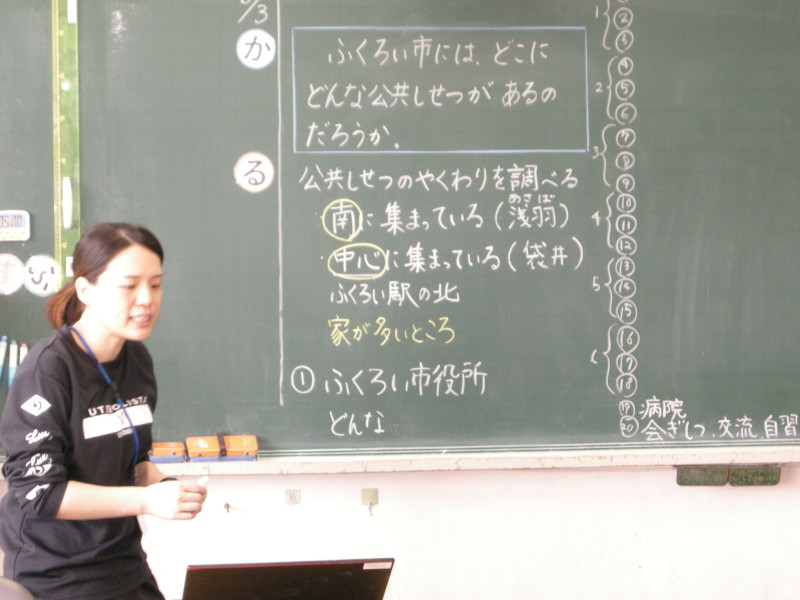 /3
か
ふくろい市には、どこに
どんな公共しせつが あるの
だろうか。
る
公共しせつのやくわりを調べる
・南に集まっている(浅羽)
あさば
・中心に集まっている(袋井)
ふくろい駅の北
家が多いところ
① ふくろい市役所
どんな
1
②
③
2
④
⑤
⑥
3
⑦
⑧
⑨
4
⑩
⑪
⑫
5
⑬
⑭
⑮
6
⑯
⑰
⑱
⑲ 病院
⑳ 会ぎしつ、交流、自習
す